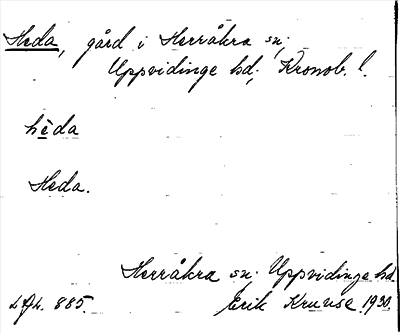 Heda, gård i Herråkra sn;
Uppvidinge hd; Kronob. l.
hèda
Heda.
Herråkra sn. Uppvidinge hd
885. Erik Kruuse. 1930.